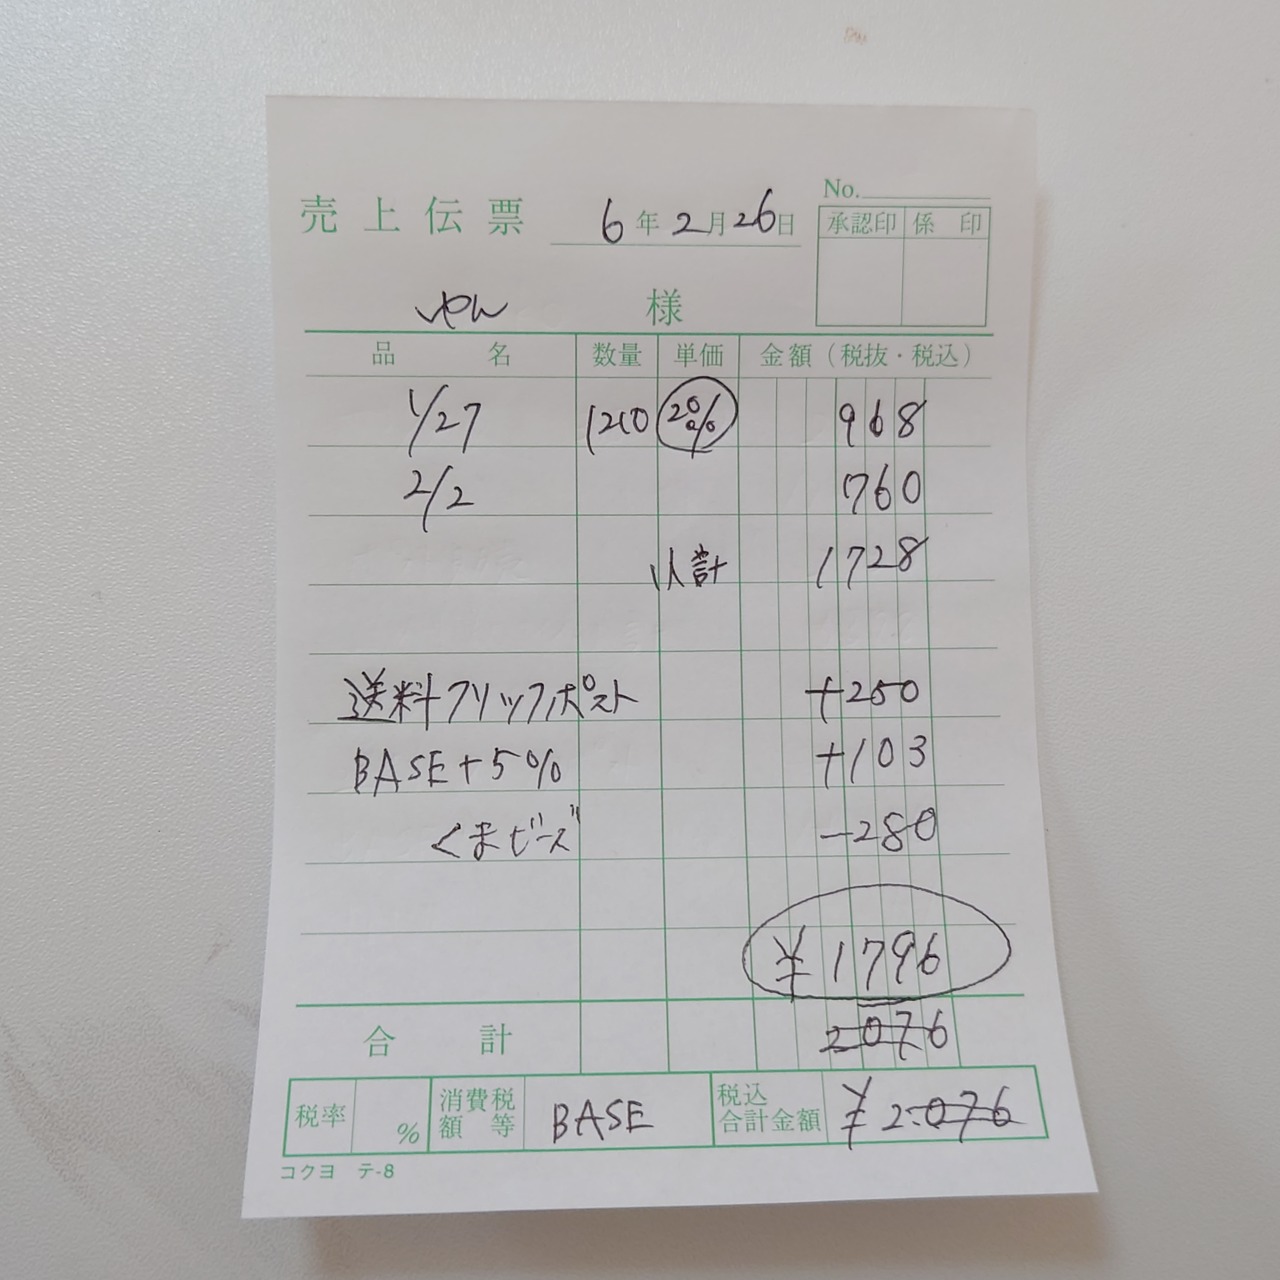 No.
売上伝票 6年2月26日
承認印 係印
ゆん 様
品名 数量 単価 金額(税抜・税込)
1/27 1210 20% 968
2/2 760
小計 1728
送料クリックポスト +250
BASE+5% +103
くまビーズ -280
¥1796
合計 2076
税率 % 消費税額等 BASE 税込合計金額 ¥2.076
コクヨ テ-8